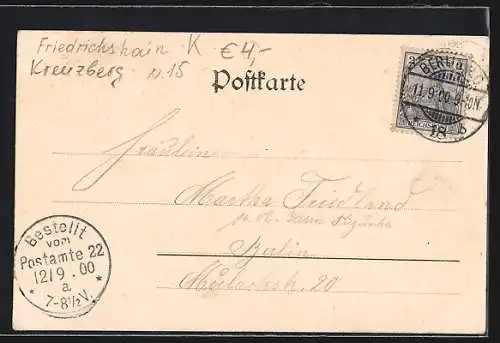 Friedrichshain K €4,-
Kreuzberg n.15
Postkarte
BERLIN
11.9.00
18 b
Fräulein
Martha Friedland
Berlin
20
Bestellt
vom
Postamte 22
12/9.00
a.
* *
7-8½V.